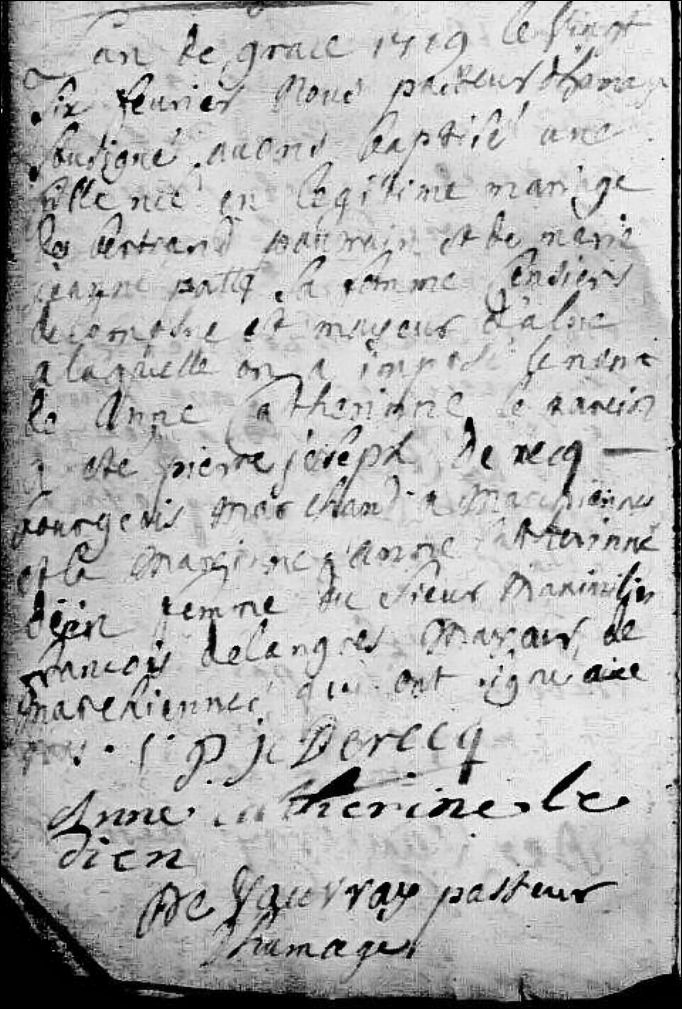 Lan de grace 1719 le vingt
six fevrier nous pasteur d'hma
sousigné avons baptisé une
fille neé en legitime mariage
de bertrand et de marie
jeanne sa femme Censiers
et mayeur d'alne
a laquelle on a imposé le nom
de Anne Catherinne le parein
a eté pierre joseph derecq —
bourgeois marchand a Marchiennes
et la Mareinne anne Catherinne
dien femme du sieur Maximilien
francois delangres Mayeur de
marchiennes qui ont signe avec
nous. P j Derecq
Anne Catherine le
dien
De Vauvray pasteur
d'humage